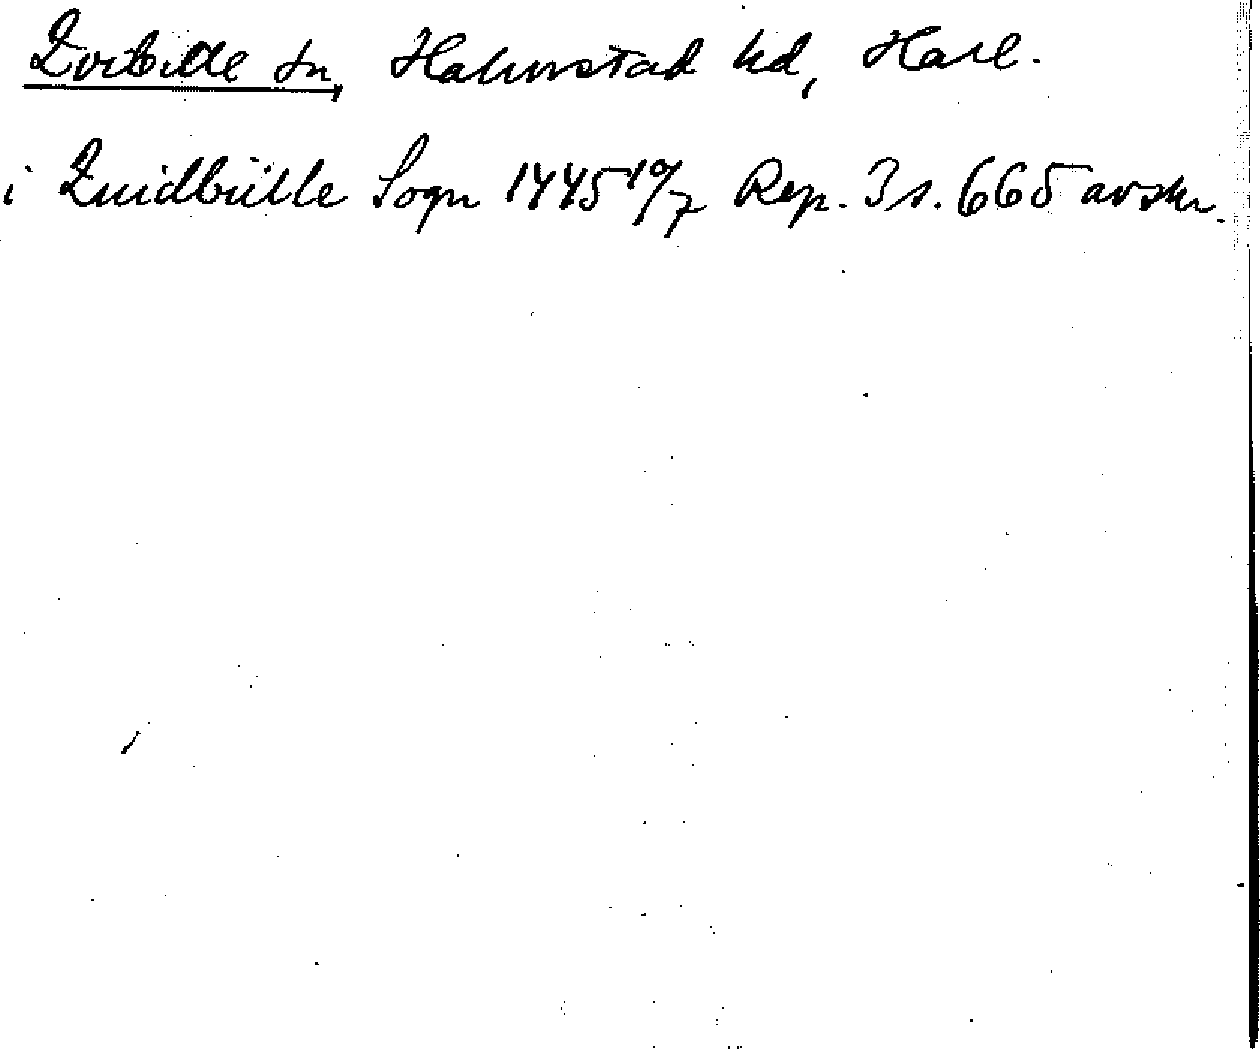 Kvibille sn, Halmstad hd, Hall.
i Quidbille Sogn 1445 10/7 Rep. 3 s. 665 avskr.